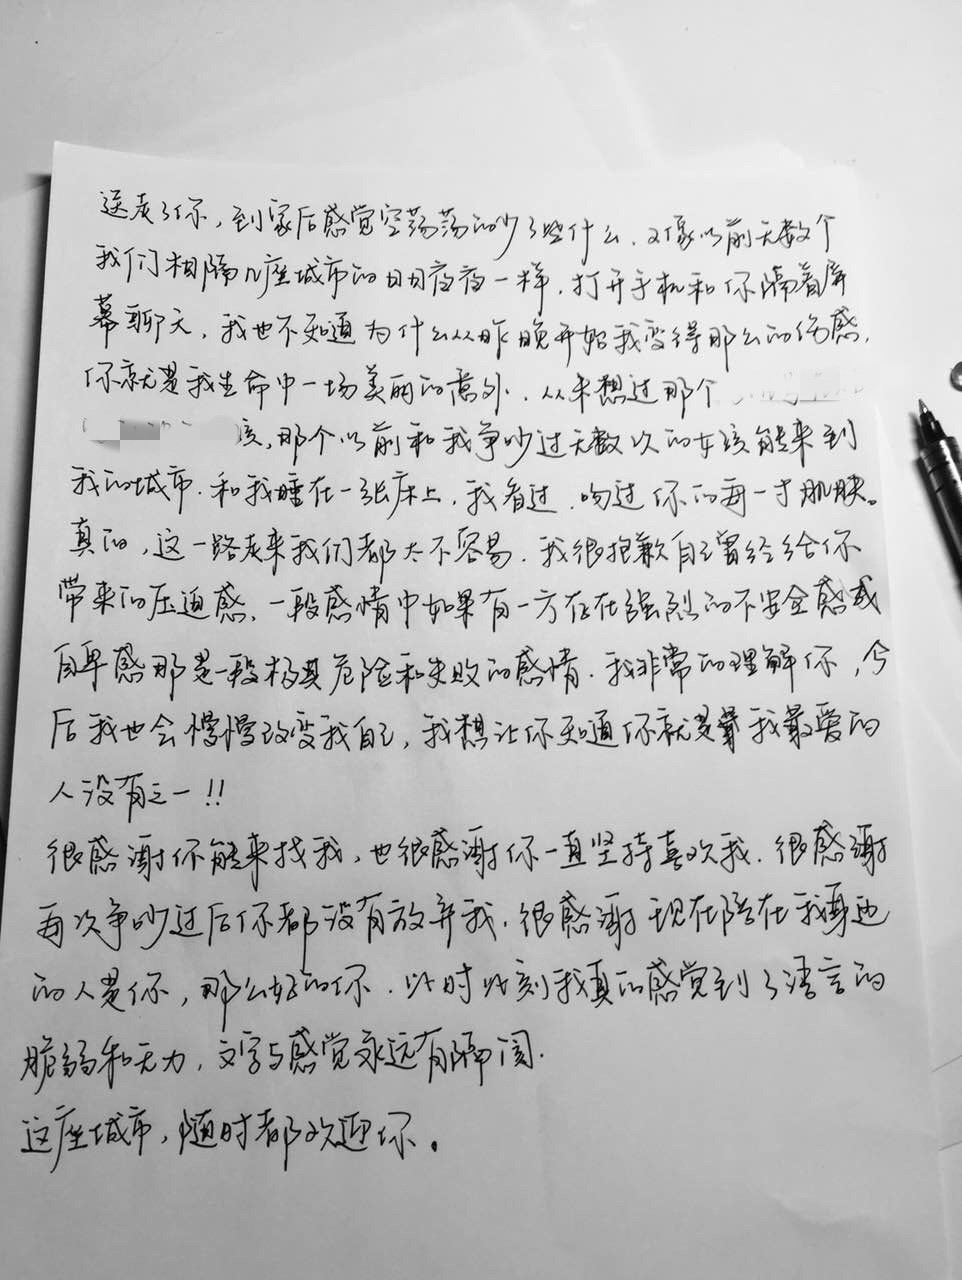 送走了你，到家后感觉空荡荡的少了些什么，又像以前无数个
我们相隔几座城市的日日夜夜一样，打开手机和你隔着屏
幕聊天，我也不知道为什么从昨晚开始我变得那么的伤感，
你就是我生命中一场美丽的意外，从未想过那个
孩，那个以前和我争吵过无数次的女孩能来到
我的城市，和我睡在一张床上，我看过，吻过你的每一寸肌肤。
真的，这一路走来我们都太不容易，我很抱歉自己曾经给你
带来的压迫感，一段感情中如果有一方存在强烈的不安全感或
自卑感那是一段极其危险和失败的感情，我非常的理解你，今
后我也会慢慢改变我自己，我想让你知道你就是我最爱的
人没有之一!!
很感谢你能来找我，也很感谢你一直坚持喜欢我，很感谢
每次争吵过后你都没有放弃我，很感谢现在陪在我身边
的人是你，那么好的你，此时此刻我真的感觉到了语言的
脆弱和无力，文字与感觉永远有隔阂.
这座城市，随时都欢迎你。